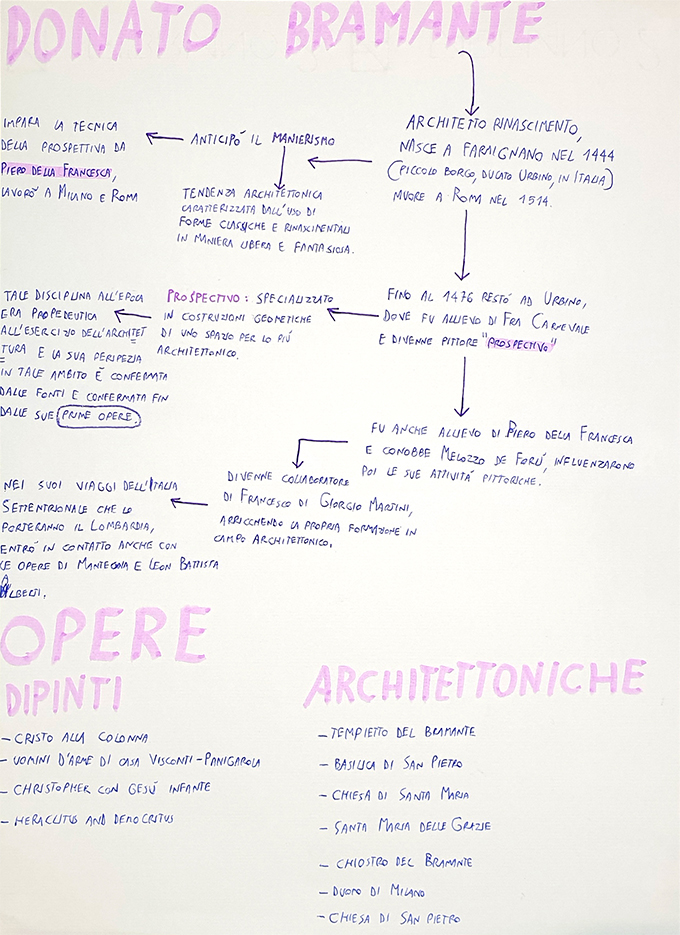 DONATO BRAMANTE
ARCHITETTO RINASCIMENTO,
NASCE A FARAIGNANO NEL 1444
(PICCOLO BORGO, DUCATO URBINO, IN ITALIA)
MUORE A ROMA NEL 1514.
ANTICIPÒ IL MANIERISMO
TENDENZA ARCHITETTONICA
CARATTERIZZATA DALL'USO DI
FORME CLASSICHE E RINASCIMENTALI
IN MANIERA LIBERA E FANTASIOSA.
IMPARA LA TECNICA
DELLA PROSPETTIVA DA
PIERO DELLA FRANCESCA,
LAVORÒ A MILANO E ROMA
FINO AL 1476 RESTÒ AD URBINO,
DOVE FU ALLIEVO DI FRA CARNEVALE
E DIVENNE PITTORE "PROSPECTIVO"
PROSPECTIVO: SPECIALIZZATO
IN COSTRUZIONI GEOMETICHE
DI UNO SPAZIO PER LO PIÙ
ARCHITETTONICO.
TALE DISCIPLINA ALL'EPOCA
ERA PROPEDEUTICA
ALL'ESERCIZIO DELL'ARCHITET
TURA E LA SUA PERIPEZIA
IN TALE AMBITO È CONFERMATA
DALLE FONTI E CONFERMATA FIN
DALLE SUE PRIME OPERE.
FU ANCHE ALLIEVO DI PIERO DELLA FRANCESCA
E CONOBBE MELOZZO DE FORLÌ, INFLUENZARONO
POI LE SUE ATTIVITÀ PITTORICHE.
DIVENNE COLLABORATORE
DI FRANCESCO DI GIORGIO MARTINI,
ARRICCHENDO LA PROPRIA FORMAZIONE IN
CAMPO ARCHITETTONICO.
NEI SUOI VIAGGI DELL'ITALIA
SETTENTRIONALE CHE LO
PORTERANNO IL LOMBARDIA,
ENTRÒ IN CONTATTO ANCHE CON
LE OPERE DI MANTEGNA E LEON BATTISTA
ALBERTI.
OPERE
DIPINTI
- CRISTO ALLA COLONNA
- UOMINI D'ARME DI CASA VISCONTI-PANIGAROLA
- CHRISTOPHER CON GESÙ INFANTE
- HERACLITUS AND DEMOCRITUS
ARCHITETTONICHE
- TEMPIETTO DEL BRAMANTE
- BASILICA DI SAN PIETRO
- CHIESA DI SANTA MARIA
- SANTA MARIA DELLE GRAZIE
- CHIOSTRO DEL BRAMANTE
- DUOMO DI MILANO
- CHIESA DI SAN PIETRO